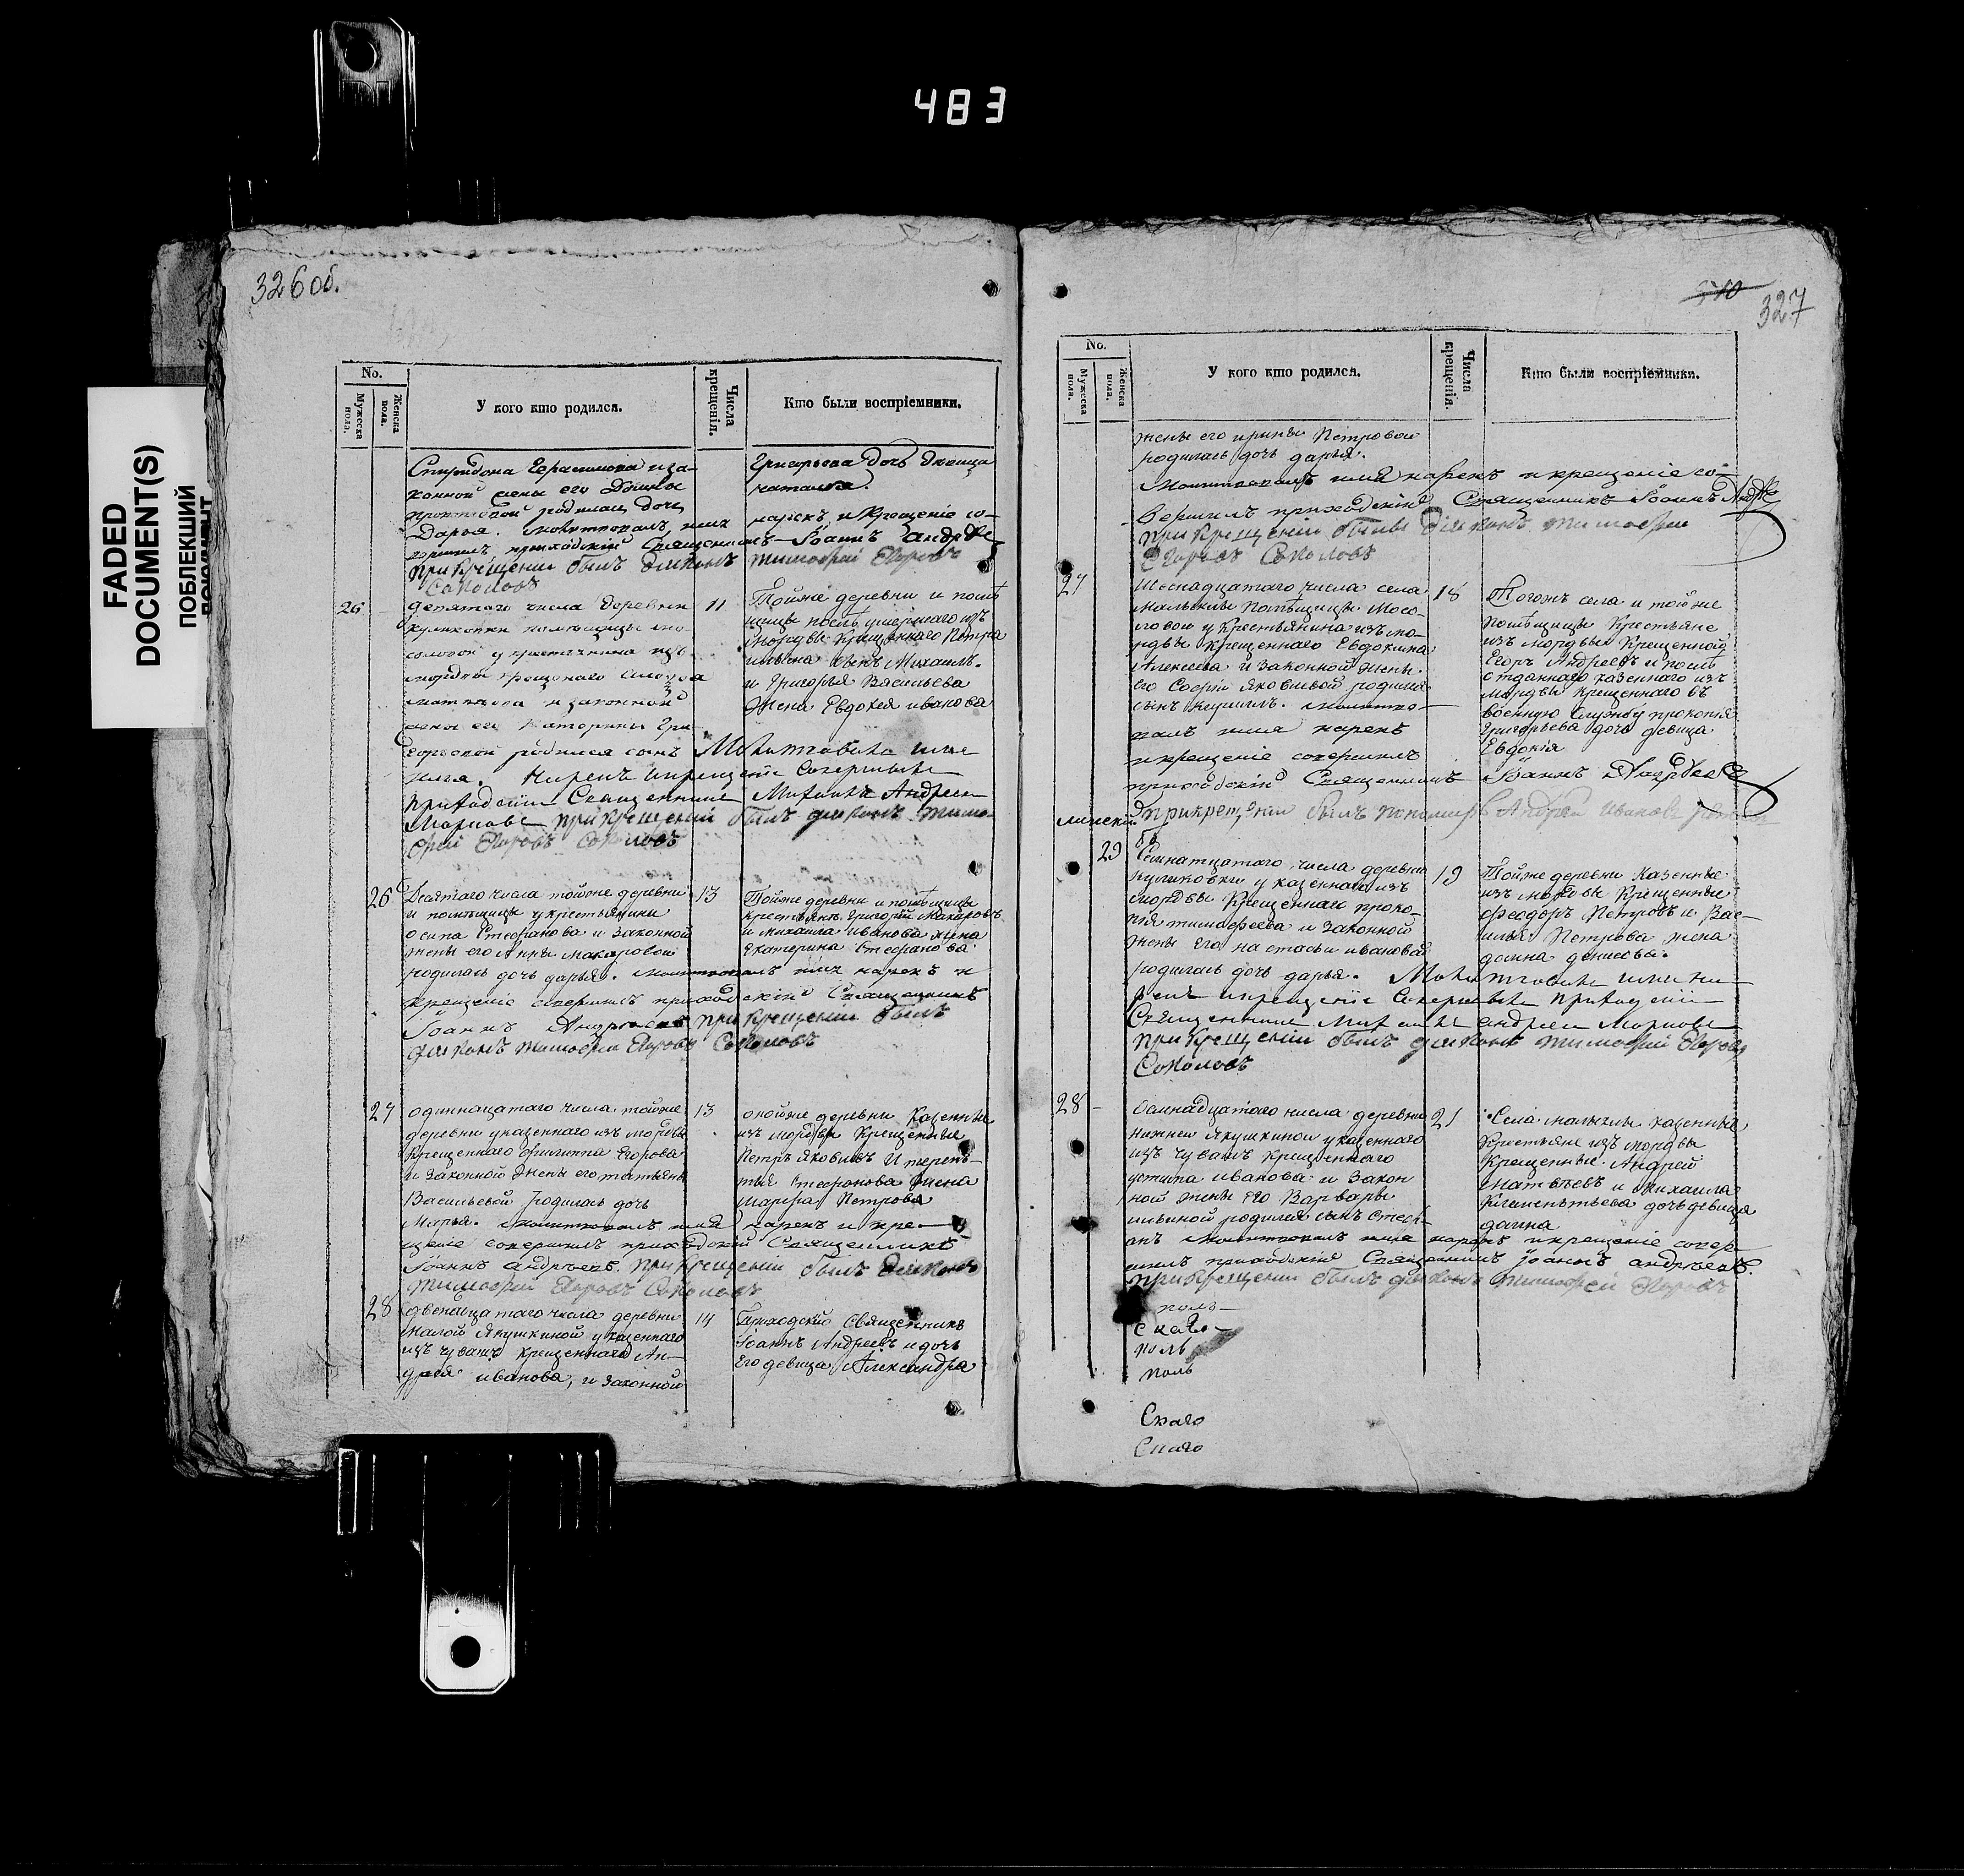 483
FADED
DOCUMENT(S)
ПОБЛЕКШИЙ
ДОКУМЕНТ
326 об.
No.
Мужеска пола.
Женска пола.
У кого кто родился.
Числа крещенія.
Кто были воспріемники.
Спиридона Герасимова и за-
конной жены его
родилась дочь
Дарья. Молитвовалъ, имя
приходскій Священникъ
При Крещеніи былъ Дьяконъ
Соколовъ
Григорьева дочь девица
наталья.
нарекъ и Крещеніе со-
Іоаннъ Андрѣе
тимофей Егоровъ
26
девятаго числа деревни
куликовки помѣщицы мо-
соловой у крестьянина изъ
мордвы крещенаго
и законной
жены его Катерины Гри-
горьевой родился сынъ
Илья. Нарекъ и крещеніе Совершилъ
приходскій Священникъ Михаилъ Андреевъ
При крещеніи былъ дьяконъ Тимо-
фей Егоровъ Соколовъ
11
Тойже деревни и помѣ
щицы послѣ умершаго изъ
мордвы Крещеннаго Петра
ильина сынъ Михаилъ.
и Григорья Васильева
Жена Евдокея иванова
Молитвовалъ имя
26
Десятаго числа тойже деревни
и помѣщицы у крестьянина
осипа Стефанова и законной
жены его Анны макаровой
родилась дочь дарья. Молитвовалъ имя нарекъ и
крещеніе совершилъ приходскій Священникъ
Іоаннъ Андреевъ При крещеніи былъ
дьяконъ тимофей Егоровъ Соколовъ
13
Тойже деревни и помѣщицы
крестьянъ Григорій Макаровъ
и михаила иванова жена
Екатерина Стефанова.
27
одиннацатаго числа тойже
деревни у казеннаго изъ мордвы
Крещеннаго филиппа Егорова
и законной жены его татьяны
Васильевой родилась дочь
Марья. Молитвовалъ имя нарекъ и кре-
щеніе совершилъ приходской Священникъ
Іоаннъ андрѣевъ. При крещеніи былъ дьяконъ
Тимофей Егоровъ Соколовъ
13
оной же деревни Казенные
изъ мордвы Крещенные
Петръ Яковлевъ И терень-
тья Стефанова жена
Марфа Петрова
28
двенатцатаго числа деревни
малой Якушкиной у казеннаго
изъ чувашъ крещеннаго Ан-
дрея иванова, и законной
14
Приходскій Священникъ
Іоаннъ Андреевъ и дочь
Его девица Александра
340
327
No.
Мужеска пола.
Женска пола.
У кого кто родился.
Числа крещенія.
Кто были воспріемники.
жены его ирины Петровой
родилась дочь дарья.
Молитвовалъ имя нарекъ и крещеніе со-
вершилъ приходскій Священникъ Іоаннъ Андре
При Крещеніи былъ Дьяконъ тимофей
Егоровъ Соколовъ
27
Шеснадцатаго числа села
малыклы Помѣщицы Мосо-
ловой у Крестьянина изъ мо-
рдвы крещеннаго Евдокима
Алексеева и законной жены
его Софьи Яковлевой родился
сынъ кирилъ. Молитво-
валъ имя нарекъ
и крещеніе совершилъ
приходскій Священникъ Іоаннъ Андрѣевъ
при крещеніи былъ пономарь Андрей ивановъ
18
Тогожъ села и тойже
Помѣщицы Крестьяне
изъ мордвы Крещенной
Егоръ Андреевъ и послѣ
отданнаго казеннаго изъ
мордвы крещеннаго въ
военную Службу прокопья
Григорьева дочь девица
Евдокія
29
Семнатцатаго числа деревни
куликовки у казеннаго изъ
мордвы Крещеннаго проко-
пья тимофеева и законной
жены Его настасьи ивановой
родилась дочь дарья. Молитвовалъ имя на-
рекъ и крещеніе Совершилъ приходскій
Священникъ Михаилъ андреевъ
При Крещеніи былъ дьяконъ тимофей Егоровъ
Соколовъ
19
Тойже деревни казенные
изъ мордвы Крещенные
Феодоръ Петровъ и Вас-
илья Петрова жена
домна денисова.
28
Осмнадцатаго числа деревни
нижней Якушкиной у казеннаго
изъ чувашъ крещеннаго
устина иванова и закон
ной жены Его Варвары
ильиной родился сынъ Стеф-
анъ Молитвовалъ имя нарекъ и крещеніе совер-
шилъ приходскій Священникъ Іоаннъ андрѣевъ.
при крещеніи былъ дьяконъ Тимофей Егоровъ
21
Села малыклы казенные
Крестьяне изъ мордвы
Крещенные Андрей
Матвѣевъ и михаила
Клементьева дочь девица
поль
поль
Скаго
Скаго